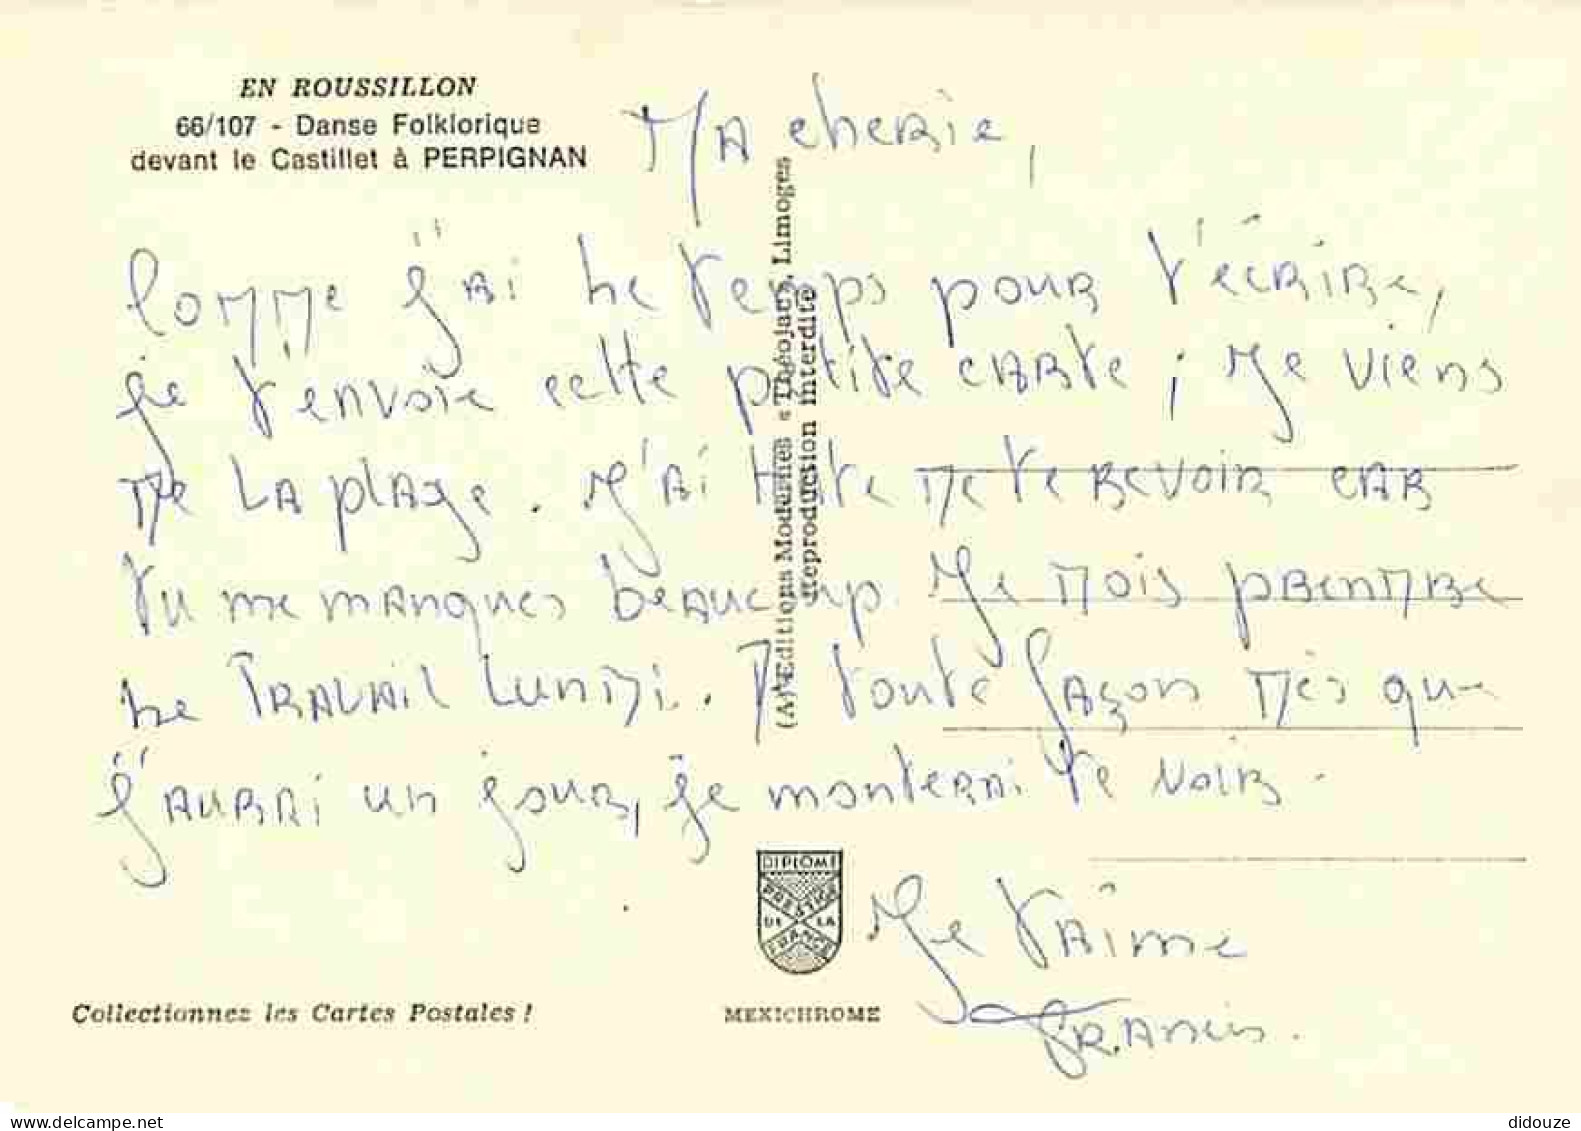 EN ROUSSILLON
66/107 - Danse Folklorique
devant le Castillet à PERPIGNAN
MA cherie,
Comme j'ai le temps pour t'écrire,
je t'envoie cette petite carte ; Je viens
de la plage. J'ai hâte de te revoir car
tu me manques beaucoup. Je dois prendre
le travail lundi. De toute façon dès que
j'aurai un jour, je monterai te voir.
Je t'aime
Francis.
(A) Editions Modernes « Théojac », Limoges
Reproduction interdite
DIPLOME
PRESTIGE
DE LA
FRANCE
Collectionnez les Cartes Postales !
MEXICHROME
delcampe.net
didouze